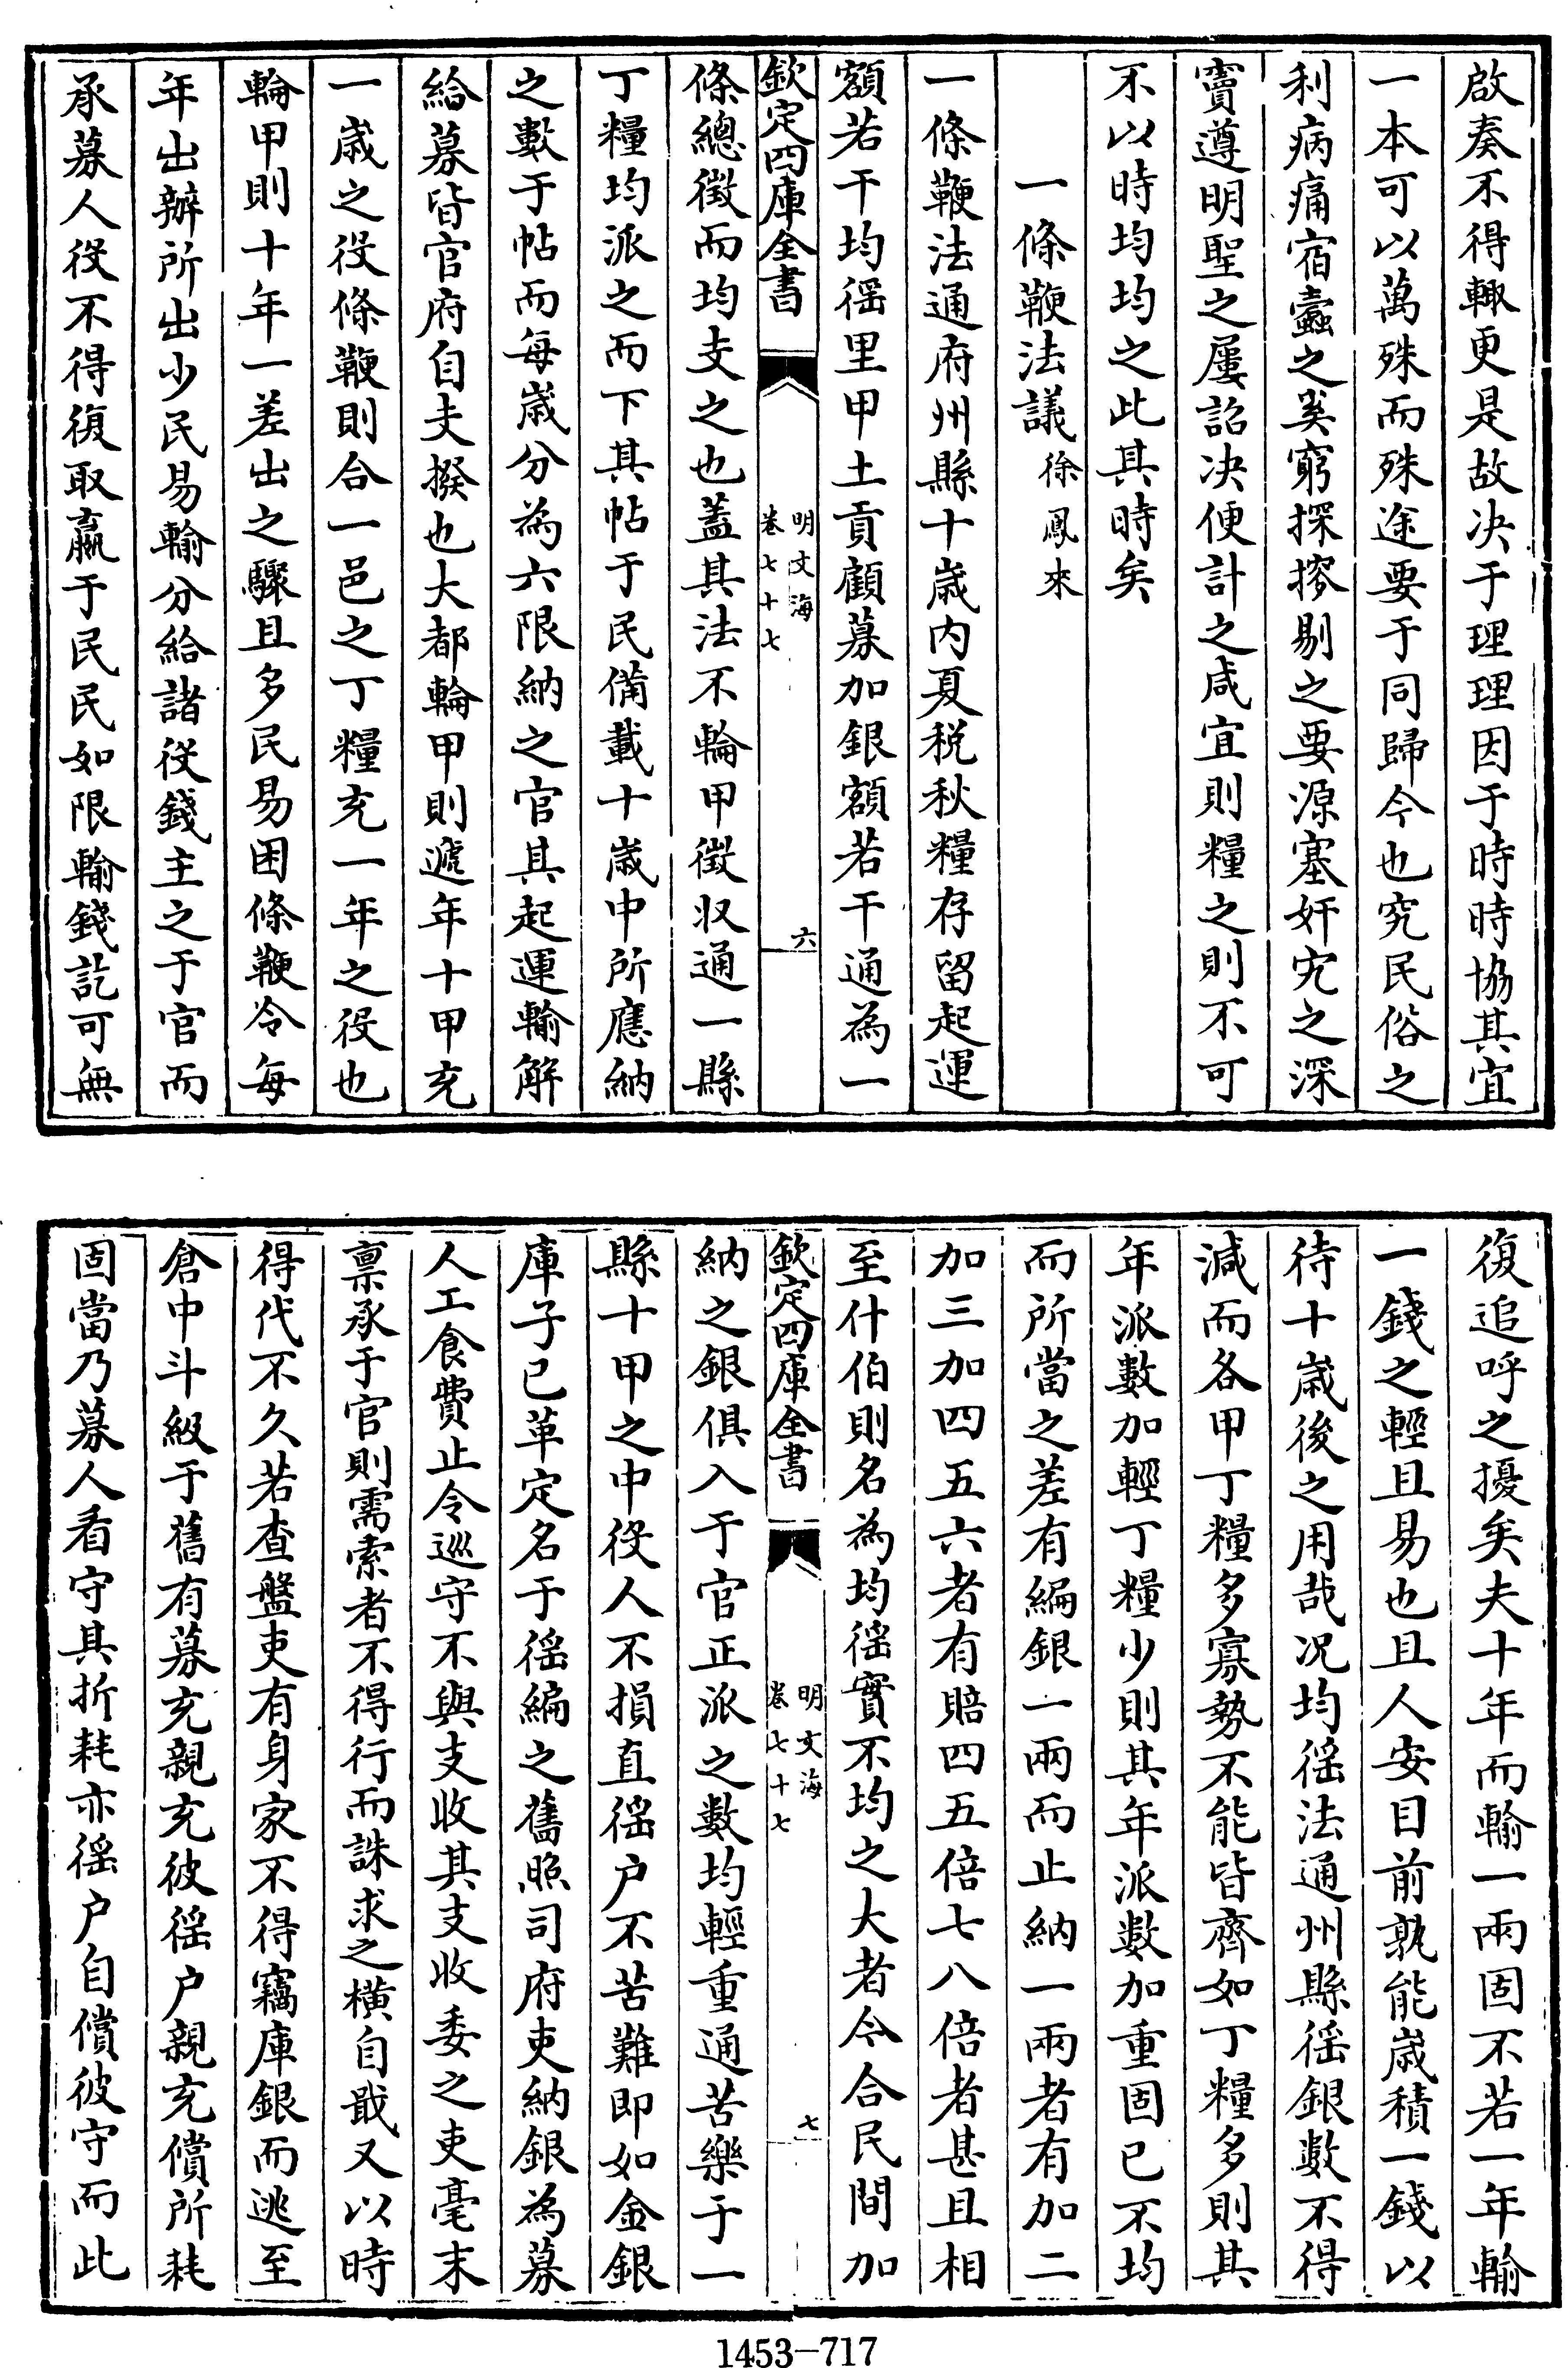 啟奏不得輙更是故決于理理因于時時協其宜
一本可以萬殊而殊途要于同歸今也究民俗之
利病痛宿蠹之奚窮探摉剔之要源塞奸宄之深
竇遵明聖之屢詔決便計之咸宜則糧之則不可
不以時均均之此其時矣
一條鞭法議徐鳳來
一條鞭法通府州縣十歲內夏稅秋糧存留起運
額若干均徭里甲土貢顧募加銀額若干通為一
欽定四庫全書
明文海
卷七十七
六
條總徵而均支之也蓋其法不輪甲徵收通一縣
丁糧均派之而下其帖于民備載十歲中所應納
之數于帖而每歲分為六限納之官其起運輸解
給募皆官府自支撥也大都輪甲則遞年十甲充
一歲之役條鞭則合一邑之丁糧充一年之役也
輪甲則十年一差出之驟且多民易困條鞭令每
年出辦所出少民易輸分給諸役錢主之于官而
承募人役不得復取贏于民民如限輸錢訖可無
復追呼之擾矣夫十年而輸一兩固不若一年輸
一錢之輕且易也且人安目前孰能歲積一錢以
待十歲後之用哉況均徭法通州縣徭銀數不得
減而各甲丁糧多寡勢不能皆齊如丁糧多則其
年派數加輕丁糧少則其年派數加重固已不均
而所當之差有編銀一兩而止納一兩者有加二
加三加四五六者有賠四五倍七八倍者甚且相
至什伯則名為均徭實不均之大者今合民間加
欽定四庫全書
明文海
卷七十七
七
納之銀俱入于官正派之數均輕重通苦樂于一
縣十甲之中役人不損直徭户不苦難即如金銀
庫子已革定名于徭編之舊照司府吏納銀為募
人工食費止令巡守不與支收其支收委之吏毫末
稟承于官則需索者不得行而誅求之橫自戢又以時
得代不久若查盤吏有身家不得竊庫銀而逃至
倉中斗級于舊有募充親充彼徭户親充償所耗
固當乃募人看守其折耗亦徭户自償彼守而此
1453-717